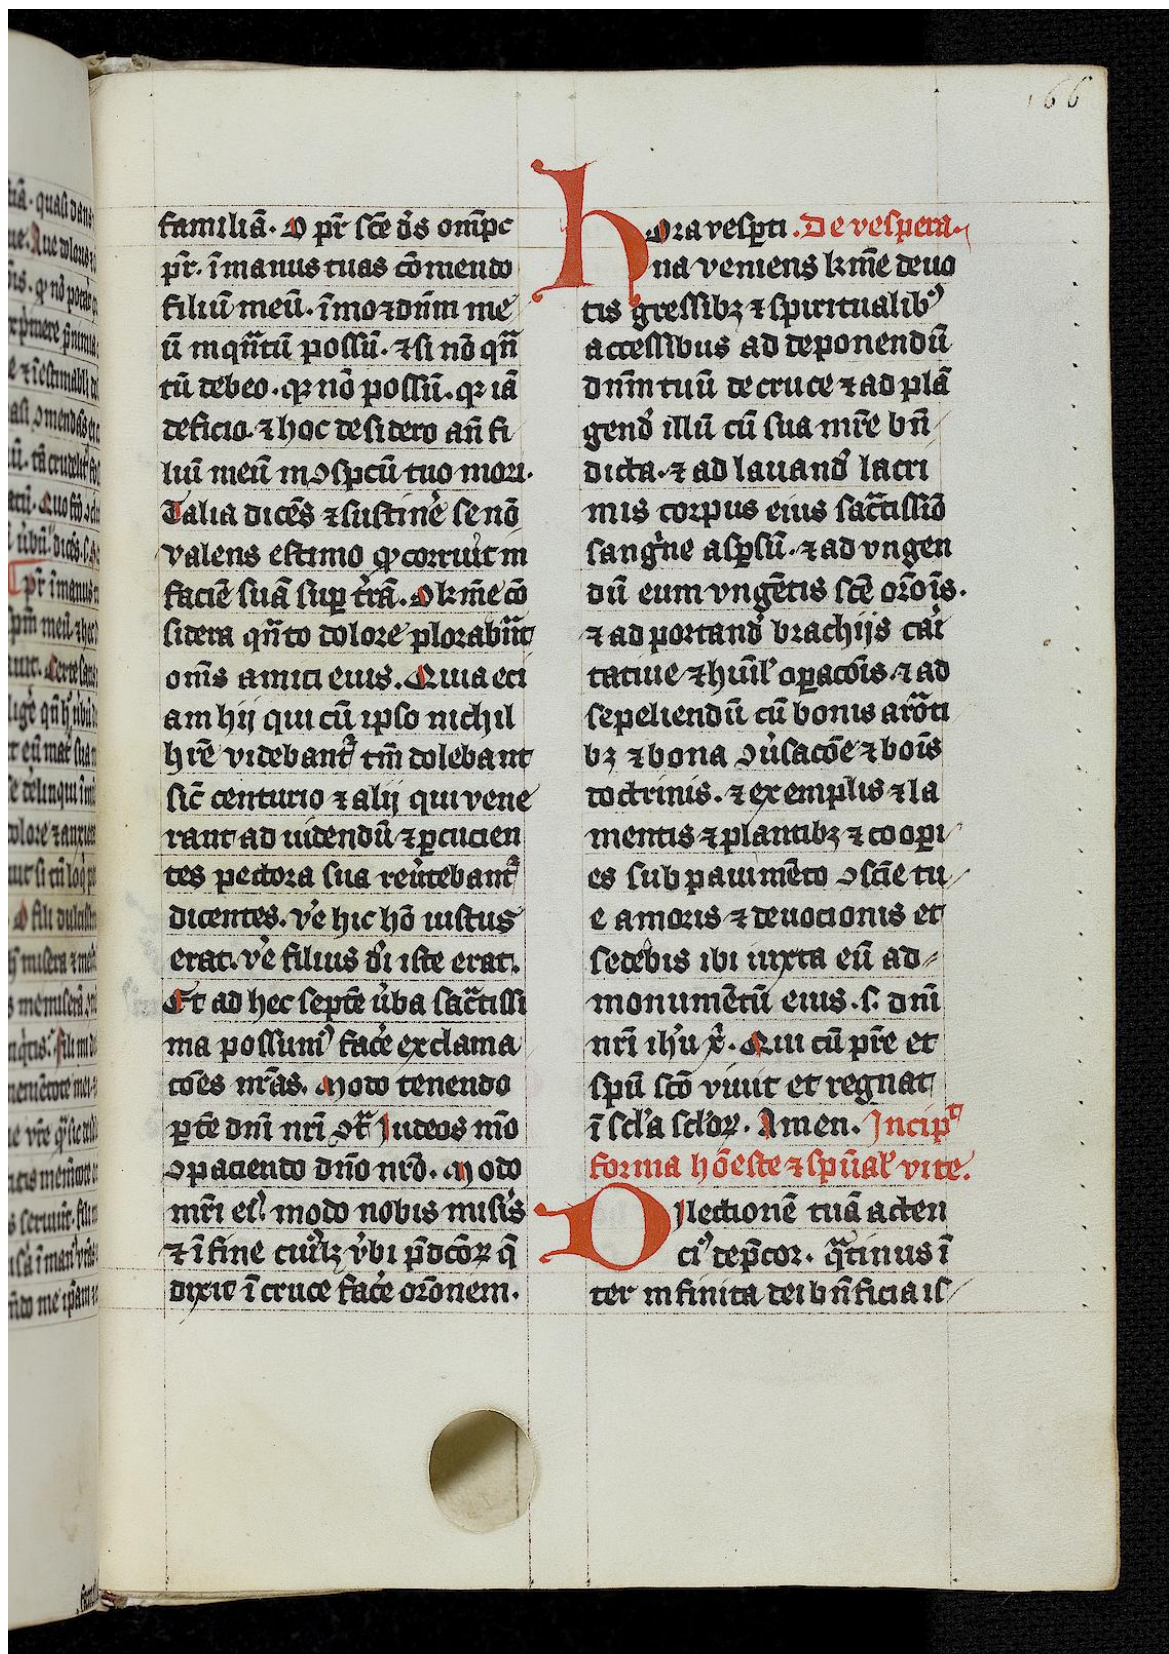 166
familiā. O pr̄ scē ds̄ omīpc
pr̄. ī manus tuas cōmendo
filiū meū. īmo ⁊ dn̄m me
ū inqn̄tū possū. ⁊ si nō qn̄
tū debeo. qr nō possū. qr iā
deficio. ⁊ hoc desidero an̄ fi
liū meū in ꝯspcū tuo mori.
Talia dicēs ⁊ sustinē se nō
valens estimo ꝙ corruit in
faciē suā suꝑ trā. O kīme cō
sidera qn̄to dolore plorabūt
om̄s amici eius. Quia eci
am hij qui cū ipso nichil
hr̄e videbant᷑ tm̄ dolebant
sic̄ centurio ⁊ alij qui vene
rant ad uidendū ⁊ ꝑcucien
tes pectora sua reūtebant᷑
dicentes. ve hic hō iustus
erat. ve filius di iste erat.
Et ad hec septē ūba sāctissi
ma possumꝰ facē exclama
cōes nr̄as. Modo tenendo
ꝑtē dn̄i nr̄i ꝯt᷑ Iudeos mō
ꝯpaciendo dn̄o nr̄o. Modo
mr̄i eiꝰ. modo nobis misis
⁊ ī fine cuiꝰlꝫ v̄bi p̄dcōꝝ q̄
dixit ī cruce facē orōnem.
hora vesꝑti. De vespera.
na veniens kīme deuo
tis gressibꝫ ⁊ spiritualibꝰ
accessibus ad deponendū
dn̄m tuū de cruce ⁊ ad plā
gend̄ illū cū sua mr̄e bn̄
dicta. ⁊ ad lauand̄ lacri
mis corpus eius sāctissiō
sangͥne aspsū. ⁊ ad vngen
dū eum vngētis scē orōis.
⁊ ad portand̄ brachijs cari
tatiue ⁊ hūil' oꝑacōis. ⁊ ad
sepeliendū cū bonis arōti
bꝫ ⁊ bona ꝯūsacōe ⁊ bois
doctrinis. ⁊ exemplis ⁊ la
mentis ⁊ plantibꝫ ⁊ cooꝑi
es sub pauimēto ꝯscīe tu
e amoris ⁊ deuocionis et
sedebis ibi iuxta eū ad
monumētū eius. s. dn̄i
nr̄i ihū xͥ. Qui cū pr̄e et
spū scō viuit et regnat
ī scl'a scl'oꝝ. Amen. Incip̄t
forma hōeste ⁊ spūal' vite.
Dilectionē tuā atten
ciꝰ dep̄cor. qͣtinus ī
ter infinita dei bn̄ficia il